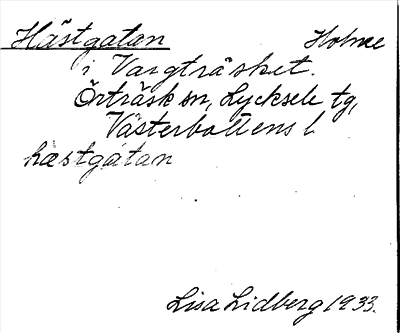 Hästgatan Holme
i Vargträsket.
Örträsk sn, Lycksele tg,
Västerbottens l
hæstgatan
Lisa Lidberg 1933.